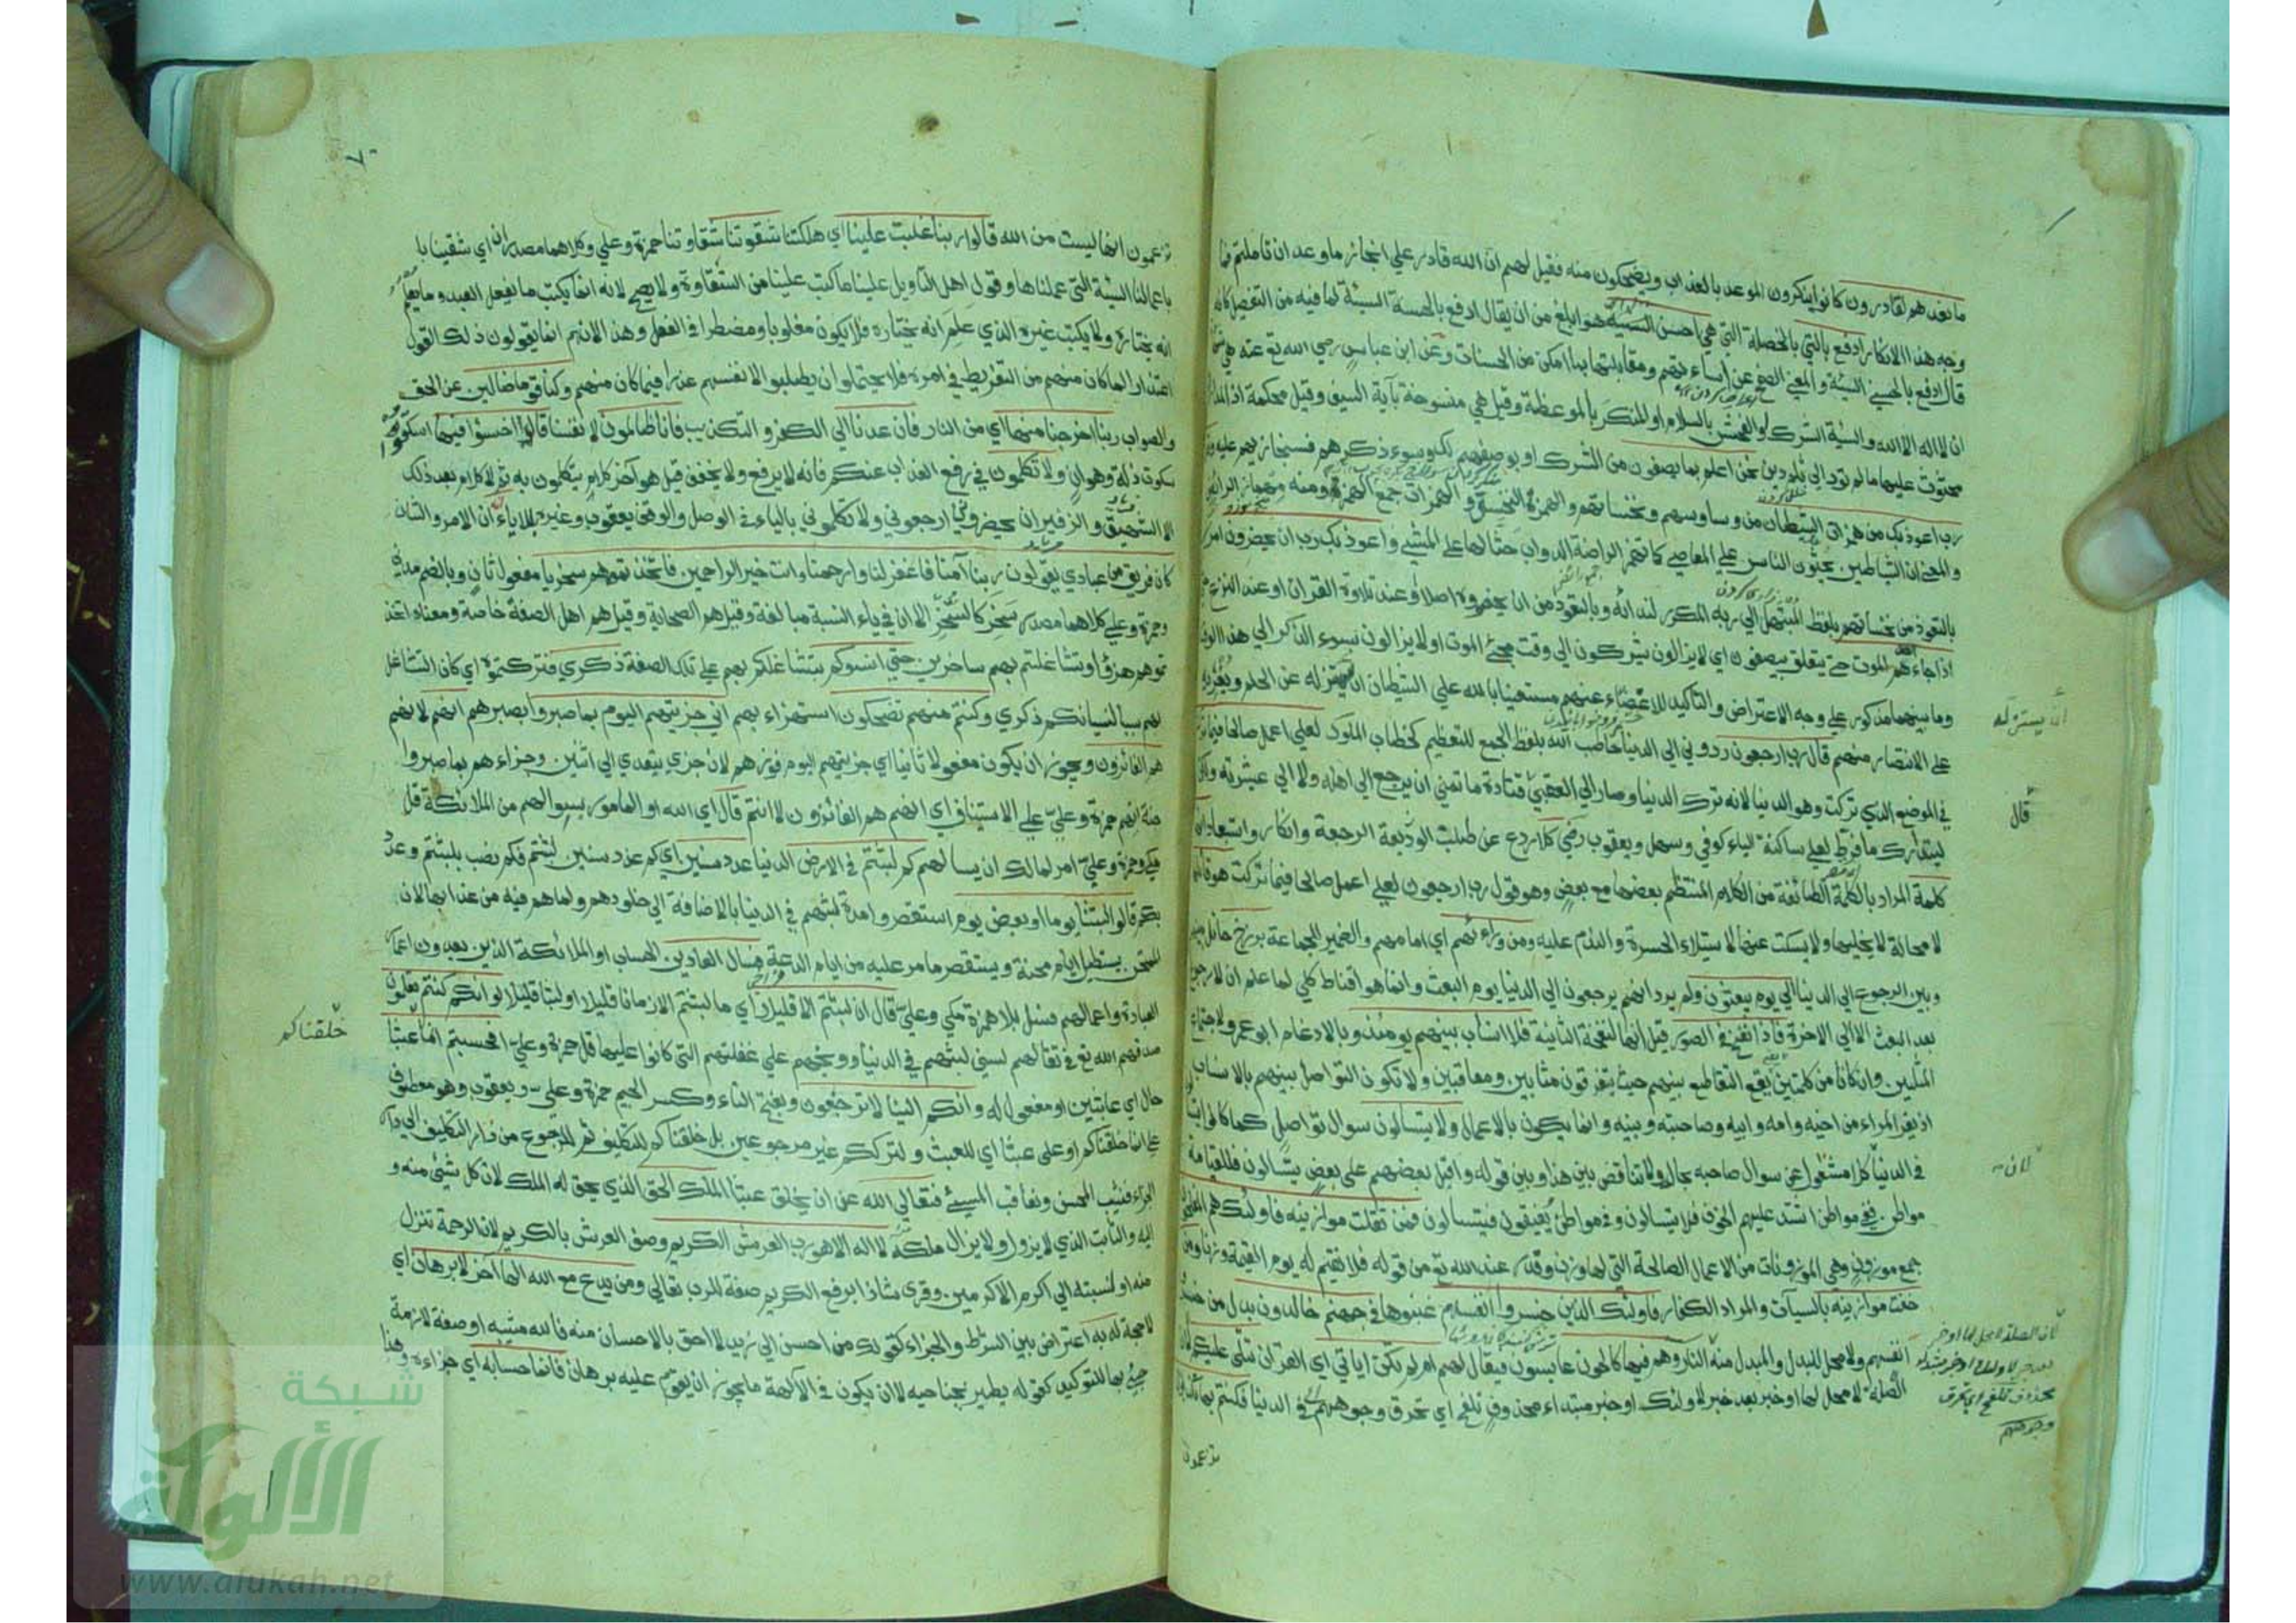 ما نعدهم لقادرون كانوا ينكرون الموعد بالعذاب ويضحكون منه فقيل لهم ان الله قادر علي انجاز ما وعد ان تاملتم فما
وجه هذا الانكار ادفع بالتي بالخصلة التي هي احسن السيئة هو ابلغ من ان يقال ادفع بالحسنة السيئة لما فيه من التفضيل كانه
قال ادفع بالحسني السيئة والمعني اصفح عن اساءتهم ومقابلتها بما امكن من الحسنات وعن ابن عباس رضي الله تع عنه هي شهادة
ان لا اله الا الله والسيئة الشرك او الفحش بالسلام او المنكر بالموعظة وقيل هي منسوخة بآية السيف وقيل محكمة اذ المداراة
محثوث عليها ما لم تؤد الي ثلم دين نحن اعلم بما يصفون من الشرك او بوصفهم لك وسوء ذكرهم فنجازيهم عليه وقل
رب اعوذ بك من همزات الشيطان من وساوسهم ونخساتهم والهمزة النخس والهمزات جمع الهمزة ومنه مهماز الرائض
والمعني ان الشياطين يحثون الناس علي المعاصي كما تهمز الراضة الدواب حثا لها علي المشي واعوذ بك رب ان يحضرون امر
بالتعوذ من نخساتهم بلفظ المبتهل الي ربه المكرر لندائه وبالتعوذ من ان يحضروه اصلا او عند تلاوة القران او عند النزع حتي
اذا جاء احدهم الموت حتي يتعلق بيصفون اي لا يزالون يشركون الي وقت مجئ الموت او لا يزالون بسوء الذكر الي هذا الوقت
وما بينهما مذكور علي وجه الاعتراض والتاكيد للاغضاء عنهم مستعينا بالله علي الشيطان ان يستزله عن الحلم ويغريه
علي الانتصار منهم قال رب ارجعون ردوني الي الدنيا خاطب الله بلفظ الجمع للتعظيم كخطاب الملوك لعلي اعمل صالحا فيما تركت
في الموضع الذي تركت وهو الدنيا لانه ترك الدنيا وصار الي العقبي قتادة ما تمني ان يرجع الي اهله ولا الي عشيرته ولكن
ليتدارك ما فرط لعلي ساكنة الياء كوفي وسهل ويعقوب كلا ردع عن طلب الرجعة وانكار واستبعاد انها
كلمة المراد بالكلمة الطائفة من الكلام المنتظم بعضها مع بعض وهو قول رب ارجعون لعلي اعمل صالحا فيما تركت هو قائلها
لا محالة لا يخليها ولا يسكت عنها لاستيلاء الحسرة والندم عليه ومن ورائهم اي امامهم والضمير للجماعة برزخ حائل بينهم
وبين الرجوع الي الدنيا الي يوم يبعثون ولم يرد انهم يرجعون الي الدنيا يوم البعث وانما هو اقناط كلي لما علم ان لا رجوع
بعد البعث الا الي الاخرة فاذا نفخ في الصور قيل انها لنفخة الثانية فلا انساب بينهم يومئذ وبالادغام ابو عمرو لاجتماع
المثلين وان كانا من كلمتين يقع التقاطع بينهم حيث يتفرقون مثابين ومعاقبين ولا تكون التواصل بينهم بالانساب
اذ يفر المراء من اخيه وامه وابيه وصاحبته وبنيه وانما يكون بالاعمال ولا يتسالون سوال تواصل كما كانوا
في الدنيا كلا مشغول عن سوال صاحبه بحاله ولا تناقض بين هذا وبين قوله واقبل بعضهم علي بعض يتسالون فللقيامة
مواطن ففي مواطن اشتد عليهم الخوف فلا يتسالون وفي مواطن يفيقون فيتسالون فمن ثقلت موازينه فاولئك هم المفلحون
جمع موزون وهي الموزونات من الاعمال الصالحة التي لها وزن وقدر عند الله تع من قوله فلا نقيم له يوم القيمة وزنا ومن
خفت موازينه بالسيآت والمراد الكفار فاولئك الذين خسروا انفسهم غبنوها في جهنم خالدون بدل من خسروا
انفسهم ولا محل للبدل والمبدل منه النار وهم فيها كالحون عابسون فيقال لهم الم تكن اياتي اي القرآن تتلي عليكم
الصلة لا محل لها او خبر بعد خبر لاولئك او خبر مبتداء محذوف تلفح اي تحرق وجوههم في الدنيا فكنتم بها تكذبون
تزعمون
ان يستزله
قال
لان
لان الصلة لا محل لها او خبر
بعد خبر لاولئك او خبر مبتداء
محذوف تلفح اي تحرق
وجوههم
تزعمون انها ليست من الله قالوا ربنا غلبت علينا اي هلكتنا شقوتنا شقاوتنا حمزة وعلي وكلاهما مصدران اي شقينا با
باعمالنا السيئة التي عملناها وقول اهل التاويل علينا ما كتب علينا من الشقاوة ولا يصح لانه انما يكتب ما يفعل العبد وما يعلم
انه يختاره ولا يكتب غيره الذي علم انه يختاره فلا يكون مغلوبا ومضطرا في الفعل وهذا لانهم انما يقولون ذلك القول
اعتذارا لما كان منهم من التفريط في امره فلا يحتمل ان يطلبوا لانفسهم عذرا فيما كان منهم وكنا قوما ضالين عن الحق
والصواب ربنا اخرجنا منها اي من النار فان عدنا الي الكفر والتكذيب فانا ظالمون لانفسنا قال اخسؤا فيها اسكتوا
سكوت ذلة وهوان ولا تكلمون في رفع العذاب عنكم فانه لا يرفع ولا يخفف قيل هو اخر كلام يتكلمون به ثم لا كلام بعد ذلك
الا الشهيق والزفير ان يحضروني ارجعوني ولا تكلموني بالياء في الوصل والوقف يعقوب وغيره بلا ياء انه ان الامر والشان
كان فريق من عبادي يقولون ربنا آمنا فاغفر لنا وارحمنا وانت خير الراحمين فاتخذتموهم سخريا مفعول ثان وبالضم مدني
وحمزة وعلي كلاهما مصدر سخر كالسخر الا ان في ياء النسبة مبالغة وقيل هم الصحابة وقيل هم اهل الصفة خاصة ومعناه اتخذ
تموهم هزؤا وتشاغلتم بهم ساخرين حتي انسوكم بتشاغلكم بهم علي تلك الصفة ذكري فتركتموه اي كان التشاغل
بهم سببا لنسيانكم ذكري وكنتم منهم تضحكون استهزاء بهم اني جزيتهم اليوم بما صبروا بصبرهم انهم لانهم
هم الفائزون ويجوز ان يكون مفعولا ثانيا اي جزيتهم اليوم فوزهم لان جزي يتعدي الي اثنين وجزاءهم بما صبروا
جنة انهم حمزة وعلي علي الاستيناف اي انهم هم الفائزون لا انتم قال اي الله او المامور بسوالهم من الملائكة قل
مكي وحمزة وعلي امر لمالك ان يسالهم كم لبثتم في الارض الدنيا عدد سنين اي كم عدد سنين لبثتم فكم نصب بلبثتم وعدد
بكم قالوا لبثنا يوما او بعض يوم استقصروا مدة لبثهم في الدنيا بالاضافة الي خلودهم ولما هم فيه من عذابها لان
الممتحن يستطيل ايام محنة ويستقصر ما مر عليه من ايام الدعة فسال العادين الحساب او الملائكة الذين يعدون اعمار
العباد واعمالهم فسئل بلا همزة مكي وعلي قال ان لبثتم الا قليلا اي ما لبثتم الا زمانا قليلا او لبثا قليلا لو انكم كنتم تعلمون
صدقهم الله تع في تقالهم لسني لبثهم في الدنيا ووبخهم علي غفلتهم التي كانوا عليها قل حمزة وعلي افحسبتم انما عبثا
حال اي عابثين او مفعول له وانكم الينا لا ترجعون وبفتح التاء وكسر الجيم حمزة وعلي ويعقوب وهو معطوف
علي انما خلقناكم او علي عبثا اي للعبث ولترككم غير مرجوعين بل خلقناكم للتكليف ثم للرجوع من دار التكليف الي دار
الجزاء فنثيب المحسن ونعاقب المسيئ فتعالي الله عن ان يخلق عبثا الملك الحق الذي يحق له الملك لان كل شئ منه و
اليه والثابت الذي لا يزول ولا يزال ملكه لا اله الا هو رب العرش الكريم وصف العرش بالكريم لان الرحمة تنزل
منه او لنسبته الي اكرم الاكرمين وقرئ شاذا برفع الكريم صفة للرب تعالي ومن يدع مع الله الها آخر لا برهان اي
لا حجة له به اعتراض بين الشرط والجزاء كقولك من احسن الي زيد لا احق بالاحسان منه فالله مثيبه او صفة لازمة
جيئ بها للتوكيد كقوله يطير بجناحيه لا ان يكون في الآلهة ما يجوز ان يقوم عليه برهان فانما حسابه اي جزاءه
خلقناكم
شبكة
الألوكة
www.alukah.net